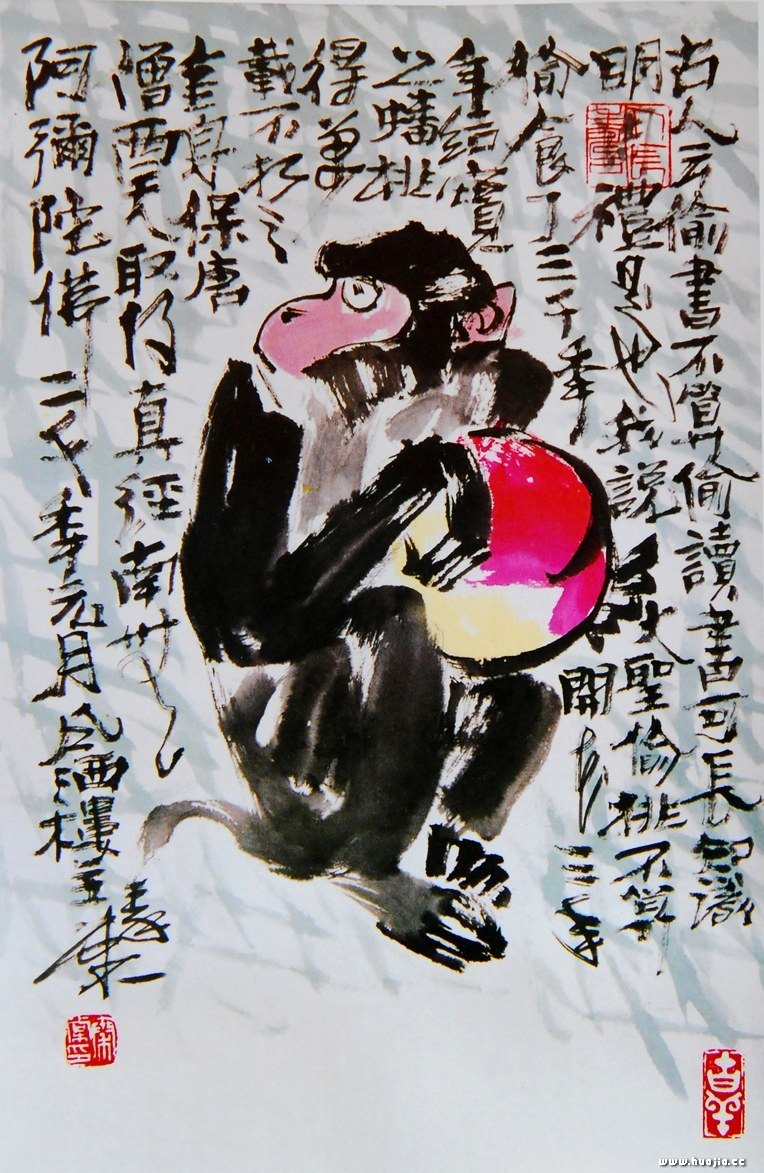 古人云偷書不算偷讀書可長知識
明禮是也我說大聖偷桃不算
偷食了三千年開花三千
年結實
之蟠桃
得萬
載不朽之
金身保唐
僧西天取得真經南無
阿彌陀佛二千年元月
酒樓主
www.huajia.cc